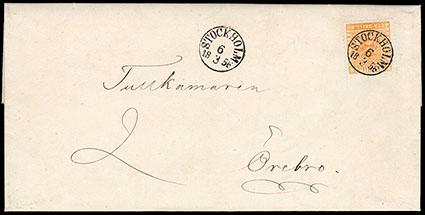 STOCKHOLM
6
3
18
STOCKHOLM
6
3
18
Tullkamaren
2
Örebro.